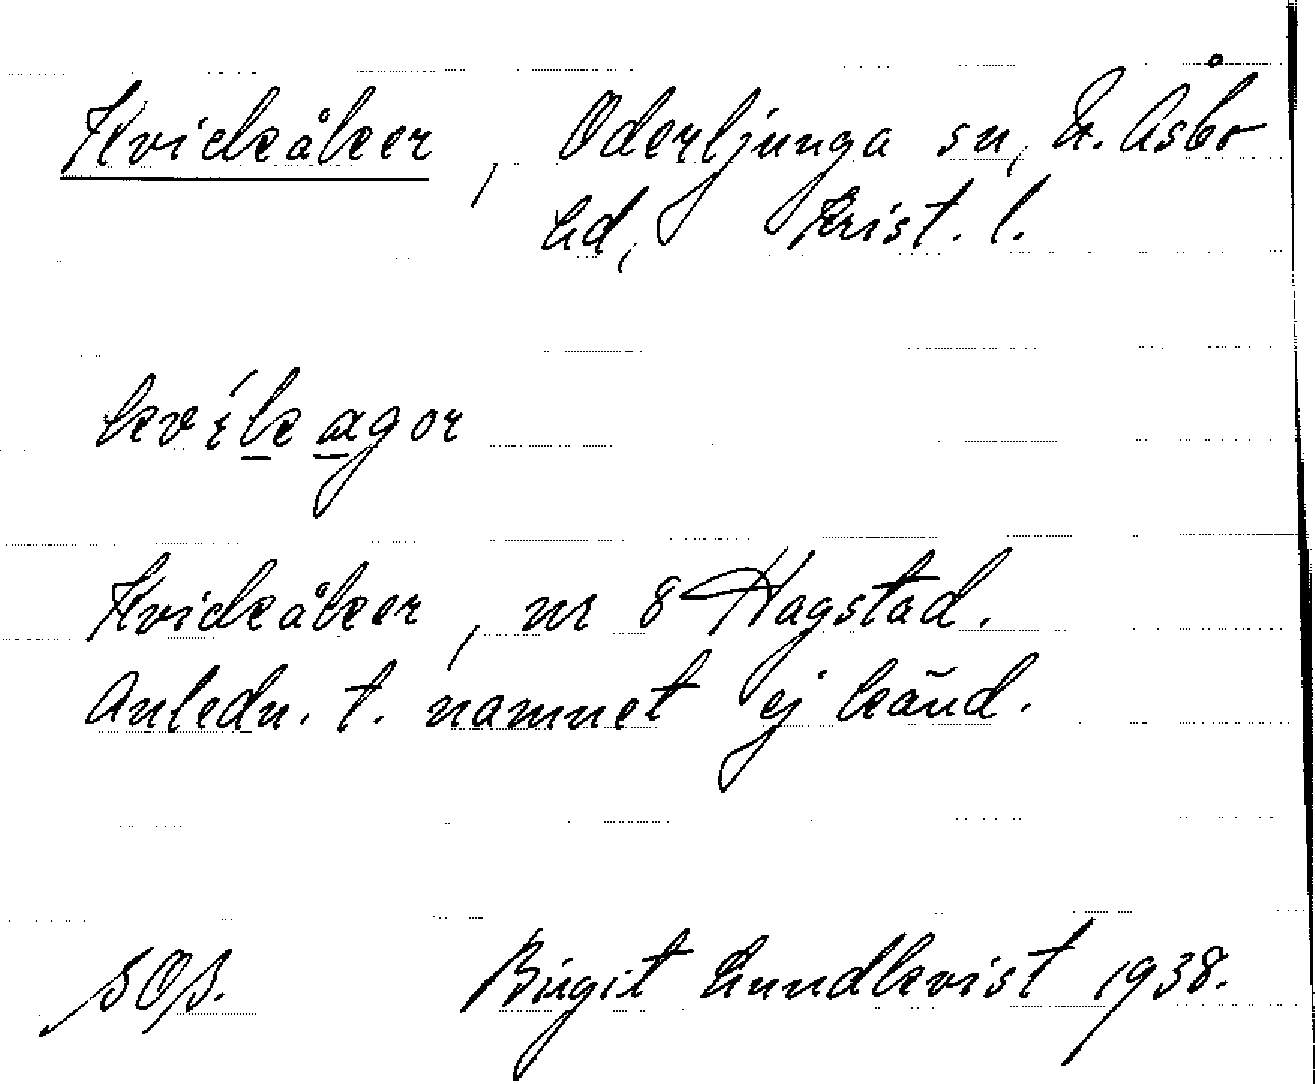 Kvickåker, Oderljunga sn, N. Åsbo
hd, Krist. l.
kvík agor
Kvickåker, nr 8 Hagstad.
Anledn. t. namnet ej känd.
SOS. Birgit Lundkvist 1938.